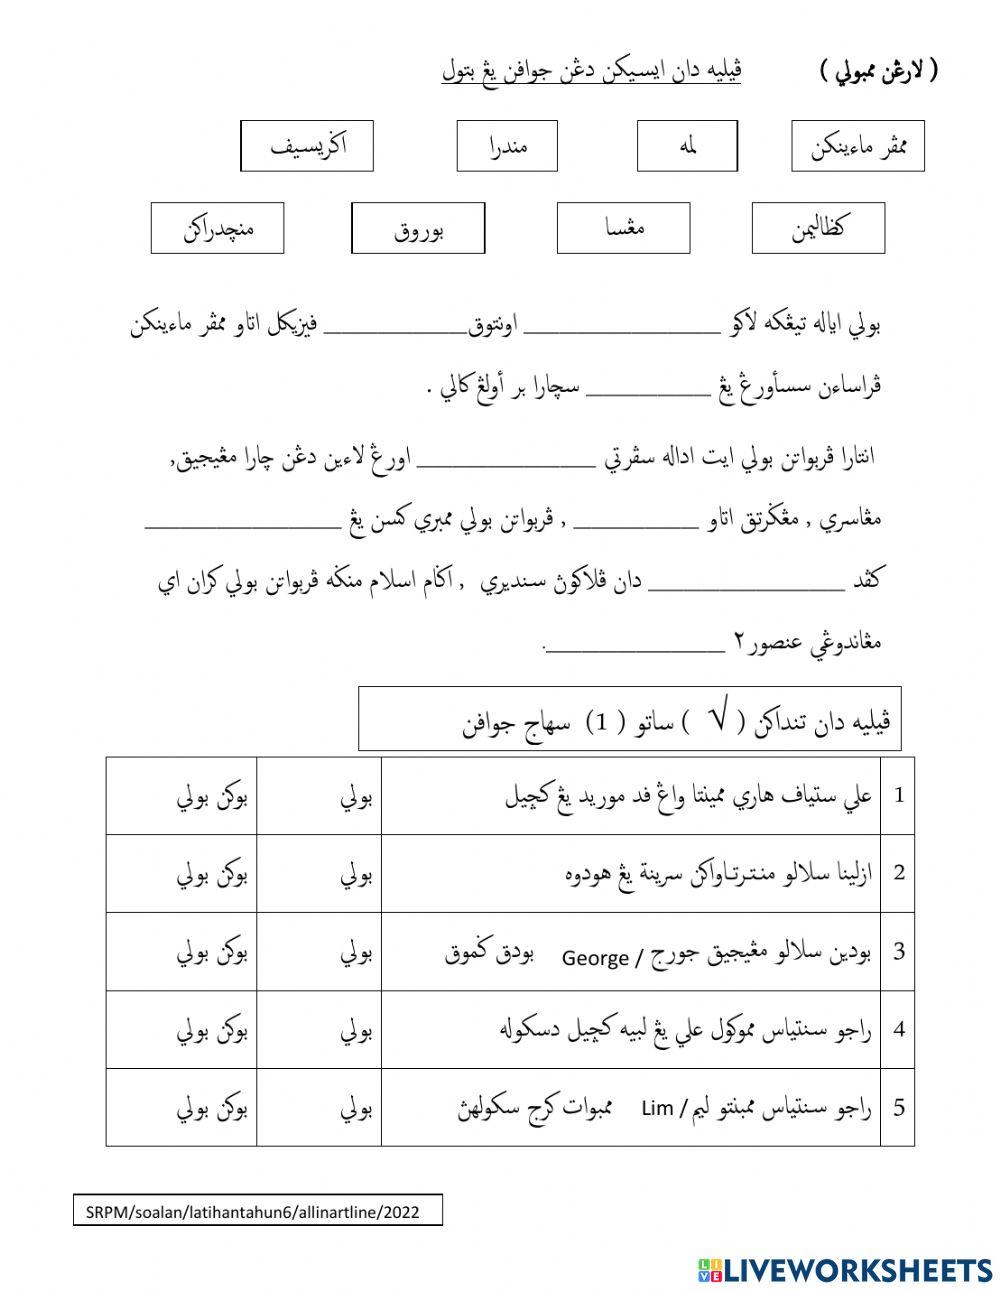 ( لارڠن ممبولي ) ڤيليه دان ايسيكن دڠن جوافن يڠ بتول
ممڤر ماءينكن لمه مندرا اݢريسيف
كظاليمن مڠسا بوروق منچدراكن
بولي اياله تيڠكه لاكو ____________ اونتوق____________ فيزيكل اتاو ممڤر ماءينكن
ڤراساءن سسأورڠ يڠ ____________ سچارا بر أولڠ كالي .
انتارا ڤربواتن بولي ايت اداله سڤرتي ____________ اورڠ لاءين دڠن چارا مڠيجيق,
مڠاسري , مڠݢرتق اتاو ____________ , ڤربواتن بولي ممبري كسن يڠ ____________
كڤد ____________ دان ڤلاكوڽ سنديري , اݢام اسلام منݢه ڤربواتن بولي كران اي
مڠاندوڠي عنصور٢ ____________.
ڤيليه دان تنداكن ( √ ) ساتو ( 1 ) سهاج جوافن
1 علي ستياف هاري ممينتا واڠ فد موريد يڠ كچيل بولي بوكن بولي
2 ازلينا سلالو منترتاواكن سرينة يڠ هودوه بولي بوكن بولي
3 بودين سلالو مڠيجيق جورج / George بودق ݢموق بولي بوكن بولي
4 راجو سنتياس مموكول علي يڠ لبيه كچيل دسكوله بولي بوكن بولي
5 راجو سنتياس ممبنتو ليم / Lim ممبوات كرج سكولهڽ بولي بوكن بولي
SRPM/soalan/latihantahun6/allinartline/2022
LIVE LIVEWORKSHEETS